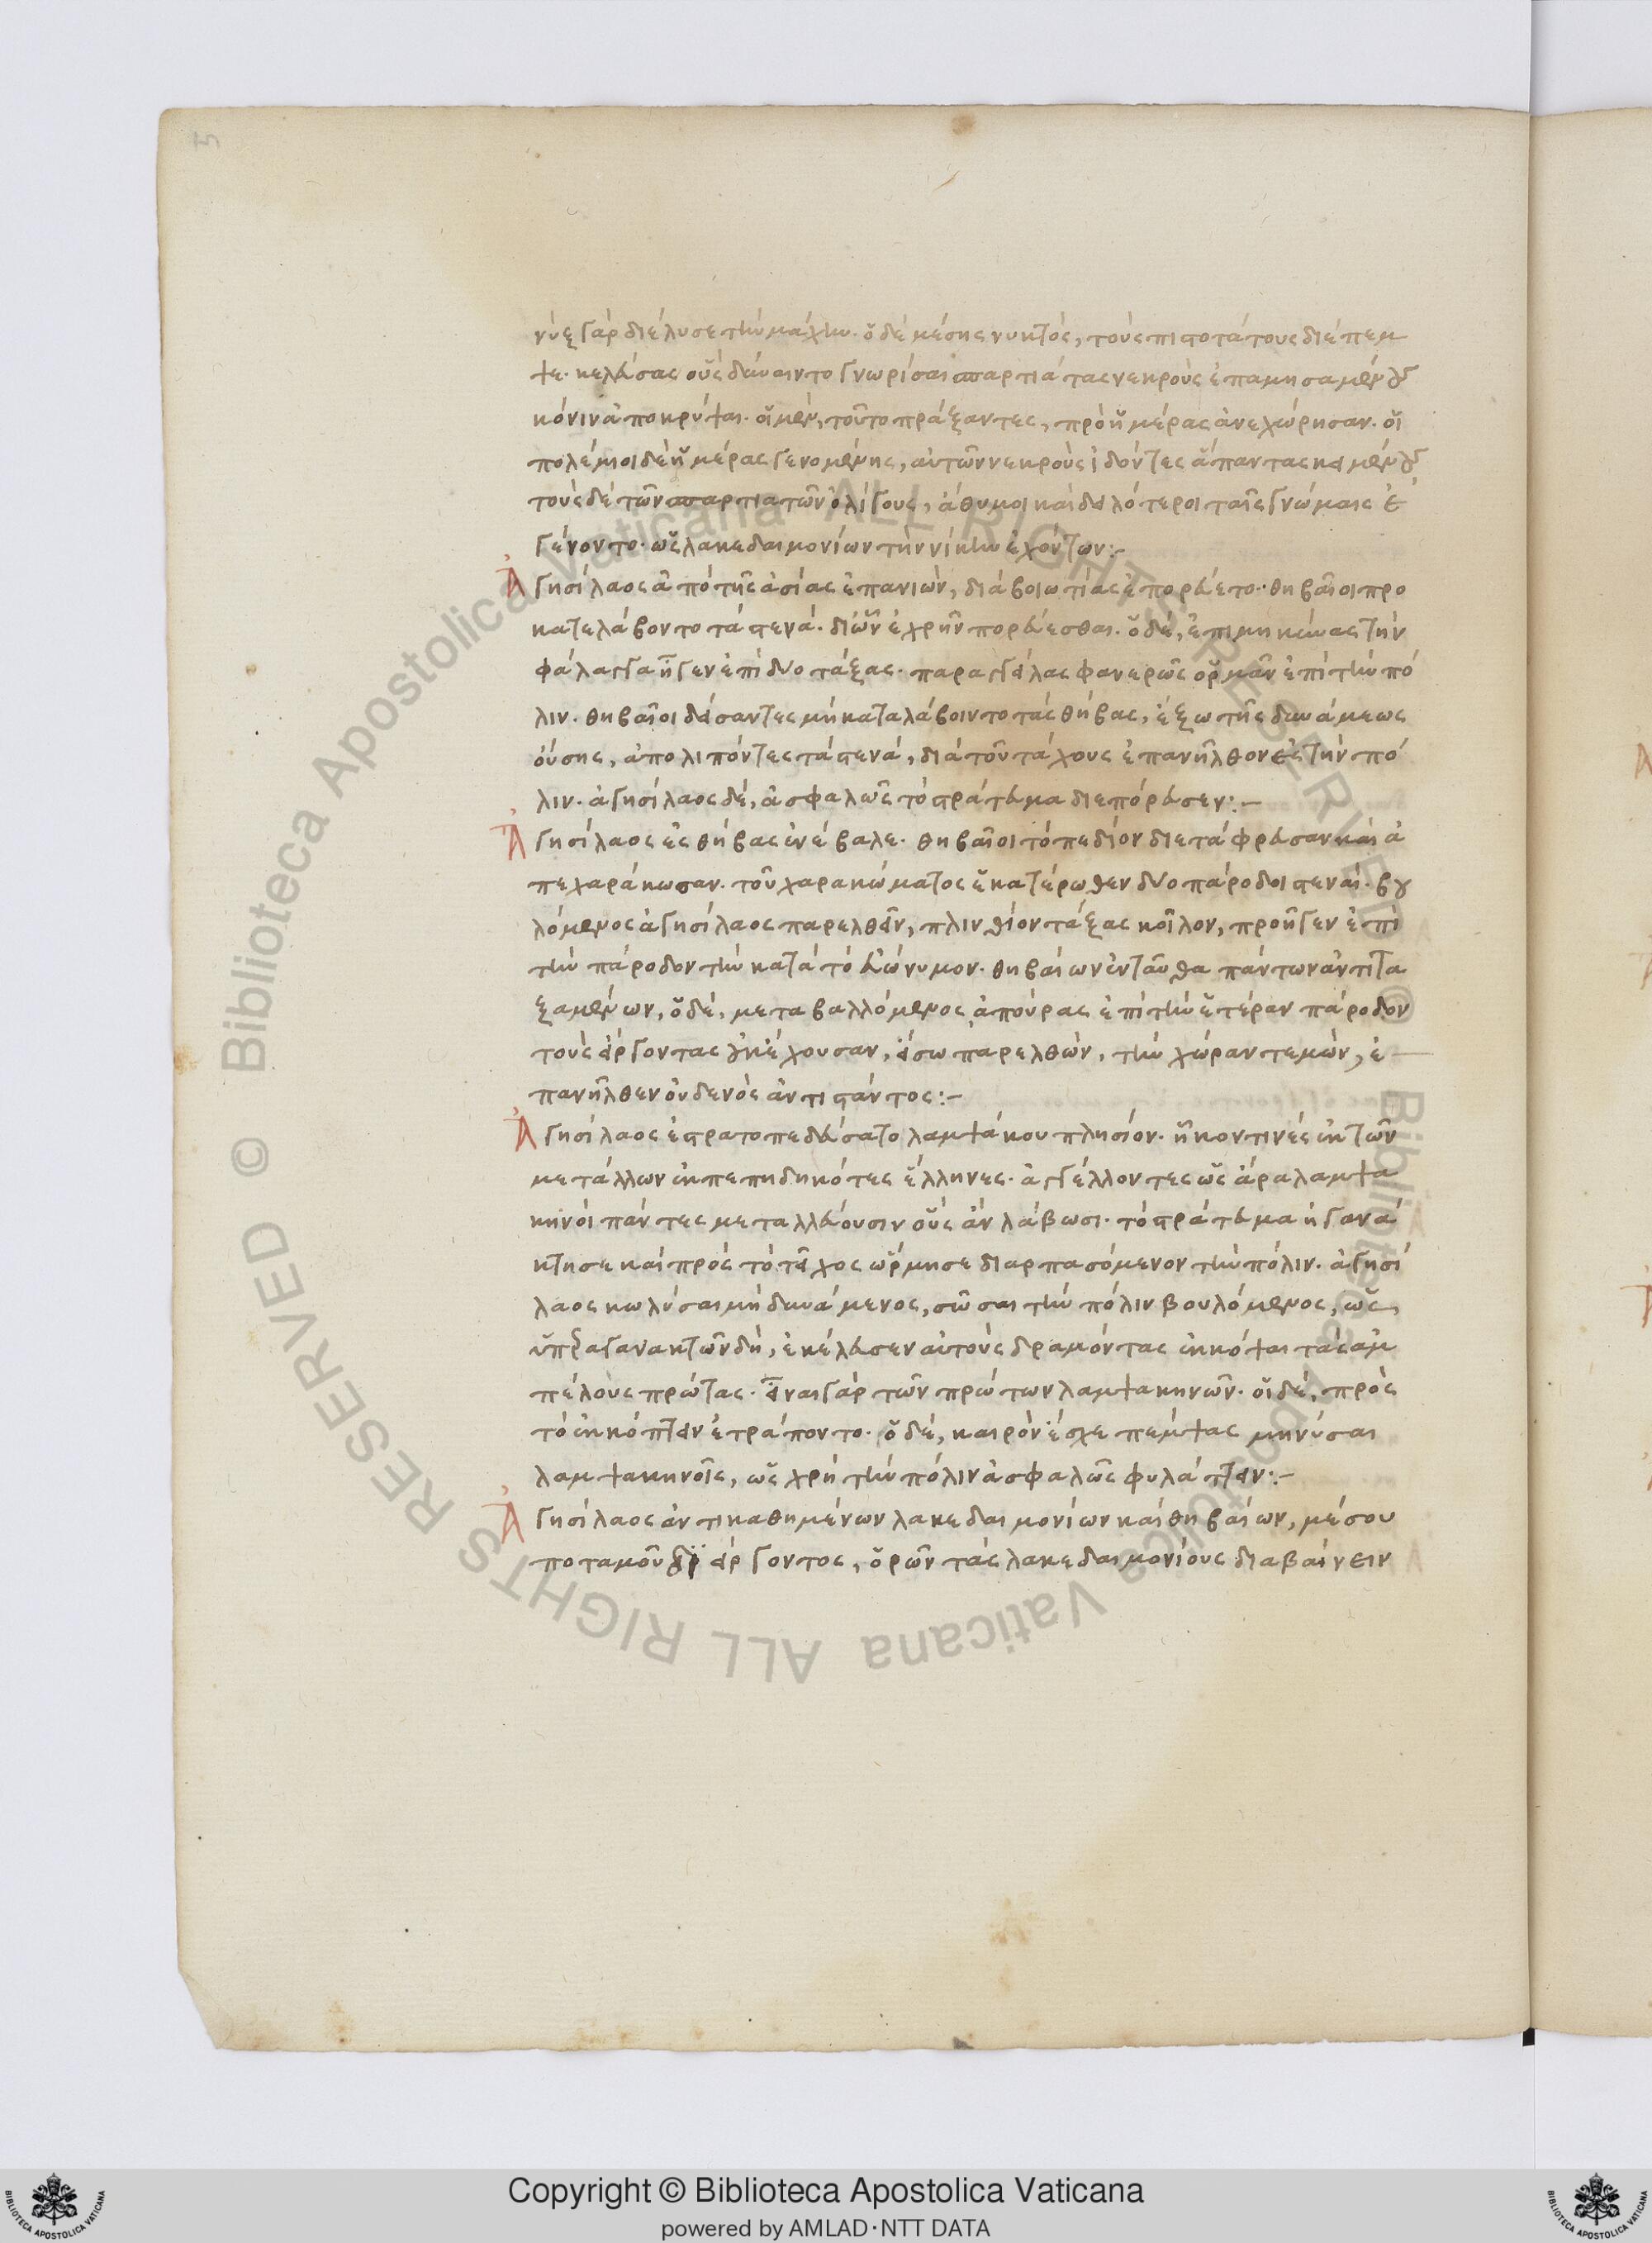 νὺξ γὰρ διέλυσε τὴν μάχην. ὁ δὲ μέσης νυκτὸς, τοὺς πιστοτάτους διέπεμ
ψε. κελεύσας οὓς δύναιντο γνωρίσαι σπαρτιάτας νεκροὺς ἐπαμησαμένους
κόνιν ἀποκρύψαι. οἱ μὲν, τοῦτο πράξαντες, πρὸ ἡμέρας ἀνεχώρησαν. οἱ
πολέμιοι δὲ ἡμέρας γενομένης, αὐτῶν νεκροὺς ἰδόντες ἅπαντας κειμένους
τοὺς δὲ τῶν σπαρτιατῶν ὀλίγους, ἄθυμοι καὶ δειλότεροι ταῖς γνώμαις ἐ
γένοντο. ὡς λακεδαιμονίων τὴν νίκην ἐχόντων:-
Ἀγησίλαος ἀπὸ τῆς ἀσίας ἐπανιὼν, διὰ βοιωτίας ἐπορεύετο. θηβαῖοι προ
κατελάβοντο τὰ στενά. δι' ὧν ἐχρῆν πορεύεσθαι. ὁ δὲ, ἐπιμηκύνας τὴν
φάλαγγα ἦγεν ἐπὶ δύο τάξας. παραγγείλας φανερῶς ὁρμᾶν ἐπὶ τὴν πό
λιν. θηβαῖοι δείσαντες μὴ καταλάβοιντο τὰς θήβας, ἔξω τῆς δυνάμεως
οὔσης, ἀπολιπόντες τὰ στενά, διὰ τοῦ τάχους ἐπανῆλθον ἐς τὴν πό
λιν. ἀγησίλαος δέ, ἀσφαλῶς τὸ στράτευμα διεπόρευσεν:-
Ἀγησίλαος ἐς θήβας ἐνέβαλε. θηβαῖοι τὸ πεδίον διετάφρευσαν καὶ ἀ
πεχαράκωσαν. τοῦ χαρακώματος ἑκατέρωθεν δύο πάροδοι στεναί. βου
λόμενος ἀγησίλαος παρελθεῖν, πλινθίον τάξας κοῖλον, προῆγεν ἐπὶ
τὴν πάροδον τὴν κατὰ τὸ εὐώνυμον. θηβαίων ἐνταῦθα πάντων ἀντιτα
ξαμένων, ὁ δὲ, μεταβαλλόμενος ἀπ' οὐρᾶς ἐπὶ τὴν ἑτέραν πάροδον
τοὺς εἴργοντας οὐκ ἔχουσαν, εἴσω παρελθὼν, τὴν χώραν τεμὼν, ἐ
πανῆλθεν οὐδενὸς ἀντιστάντος:-
Ἀγησίλαος ἐστρατοπεδεύσατο λαμψάκου πλησίον. ἧκον τινὲς ἐκ τῶν
μετάλλων ἐκπεπηδηκότες ἕλληνες. ἀγγέλλοντες ὡς ἄρα λαμψα
κηνοὶ πάντες μεταλλεύουσιν οὓς ἂν λάβωσι. τὸ στράτευμα ἠγανά
κτησε καὶ πρὸς τὸ τεῖχος ὥρμησε διαρπασόμενον τὴν πόλιν. ἀγησί
λαος κωλύσαι μὴ δυνάμενος, σῶσαι τὴν πόλιν βουλόμενος, ὡς
ὑπεραγανακτῶν δὴ, ἐκέλευσεν αὐτοὺς δραμόντας ἐκκόψαι τὰς ἀμ
πέλους πρώτας. εἶναι γὰρ τῶν πρώτων λαμψακηνῶν. οἱ δὲ, πρὸς
τὸ ἐκκόπτειν ἐτράποντο. ὁ δὲ, καιρὸν ἔσχε πέμψας μηνύσαι
λαμψακηνοῖς, ὡς χρὴ τὴν πόλιν ἀσφαλῶς φυλάττειν:-
Ἀγησίλαος ἀντικαθημένων λακεδαιμονίων καὶ θηβαίων, μέσου
ποταμοῦ εἴργοντος, ὁρῶν τὰς λακεδαιμονίους διαβαίνειν
© Biblioteca Apostolica Vaticana ALL RIGHTS RESERVED
© Biblioteca Apostolica Vaticana ALL RIGHTS RESERVED
Copyright © Biblioteca Apostolica Vaticana
powered by AMLAD·NTT DATA
BIBLIOTECA APOSTOLICA VATICANA
BIBLIOTECA APOSTOLICA VATICANA